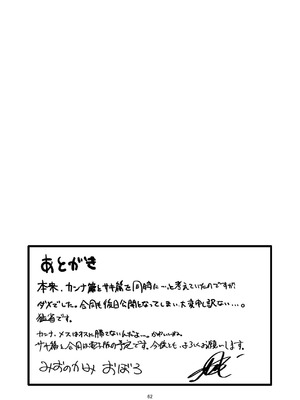 あとがき
本来、カンナ篇とサキ篇を同時に…と考えていたのですが
ダメでした。今回も後日公開となってしまい大変申し訳ない…。
猛省です。
カンナ、メスはオスに勝てないんだよ…。かわいいね。
サキ篇も今月は電子版の予定です。今後とも、よろしくお願いします。
みずのかみ おぼろ
62